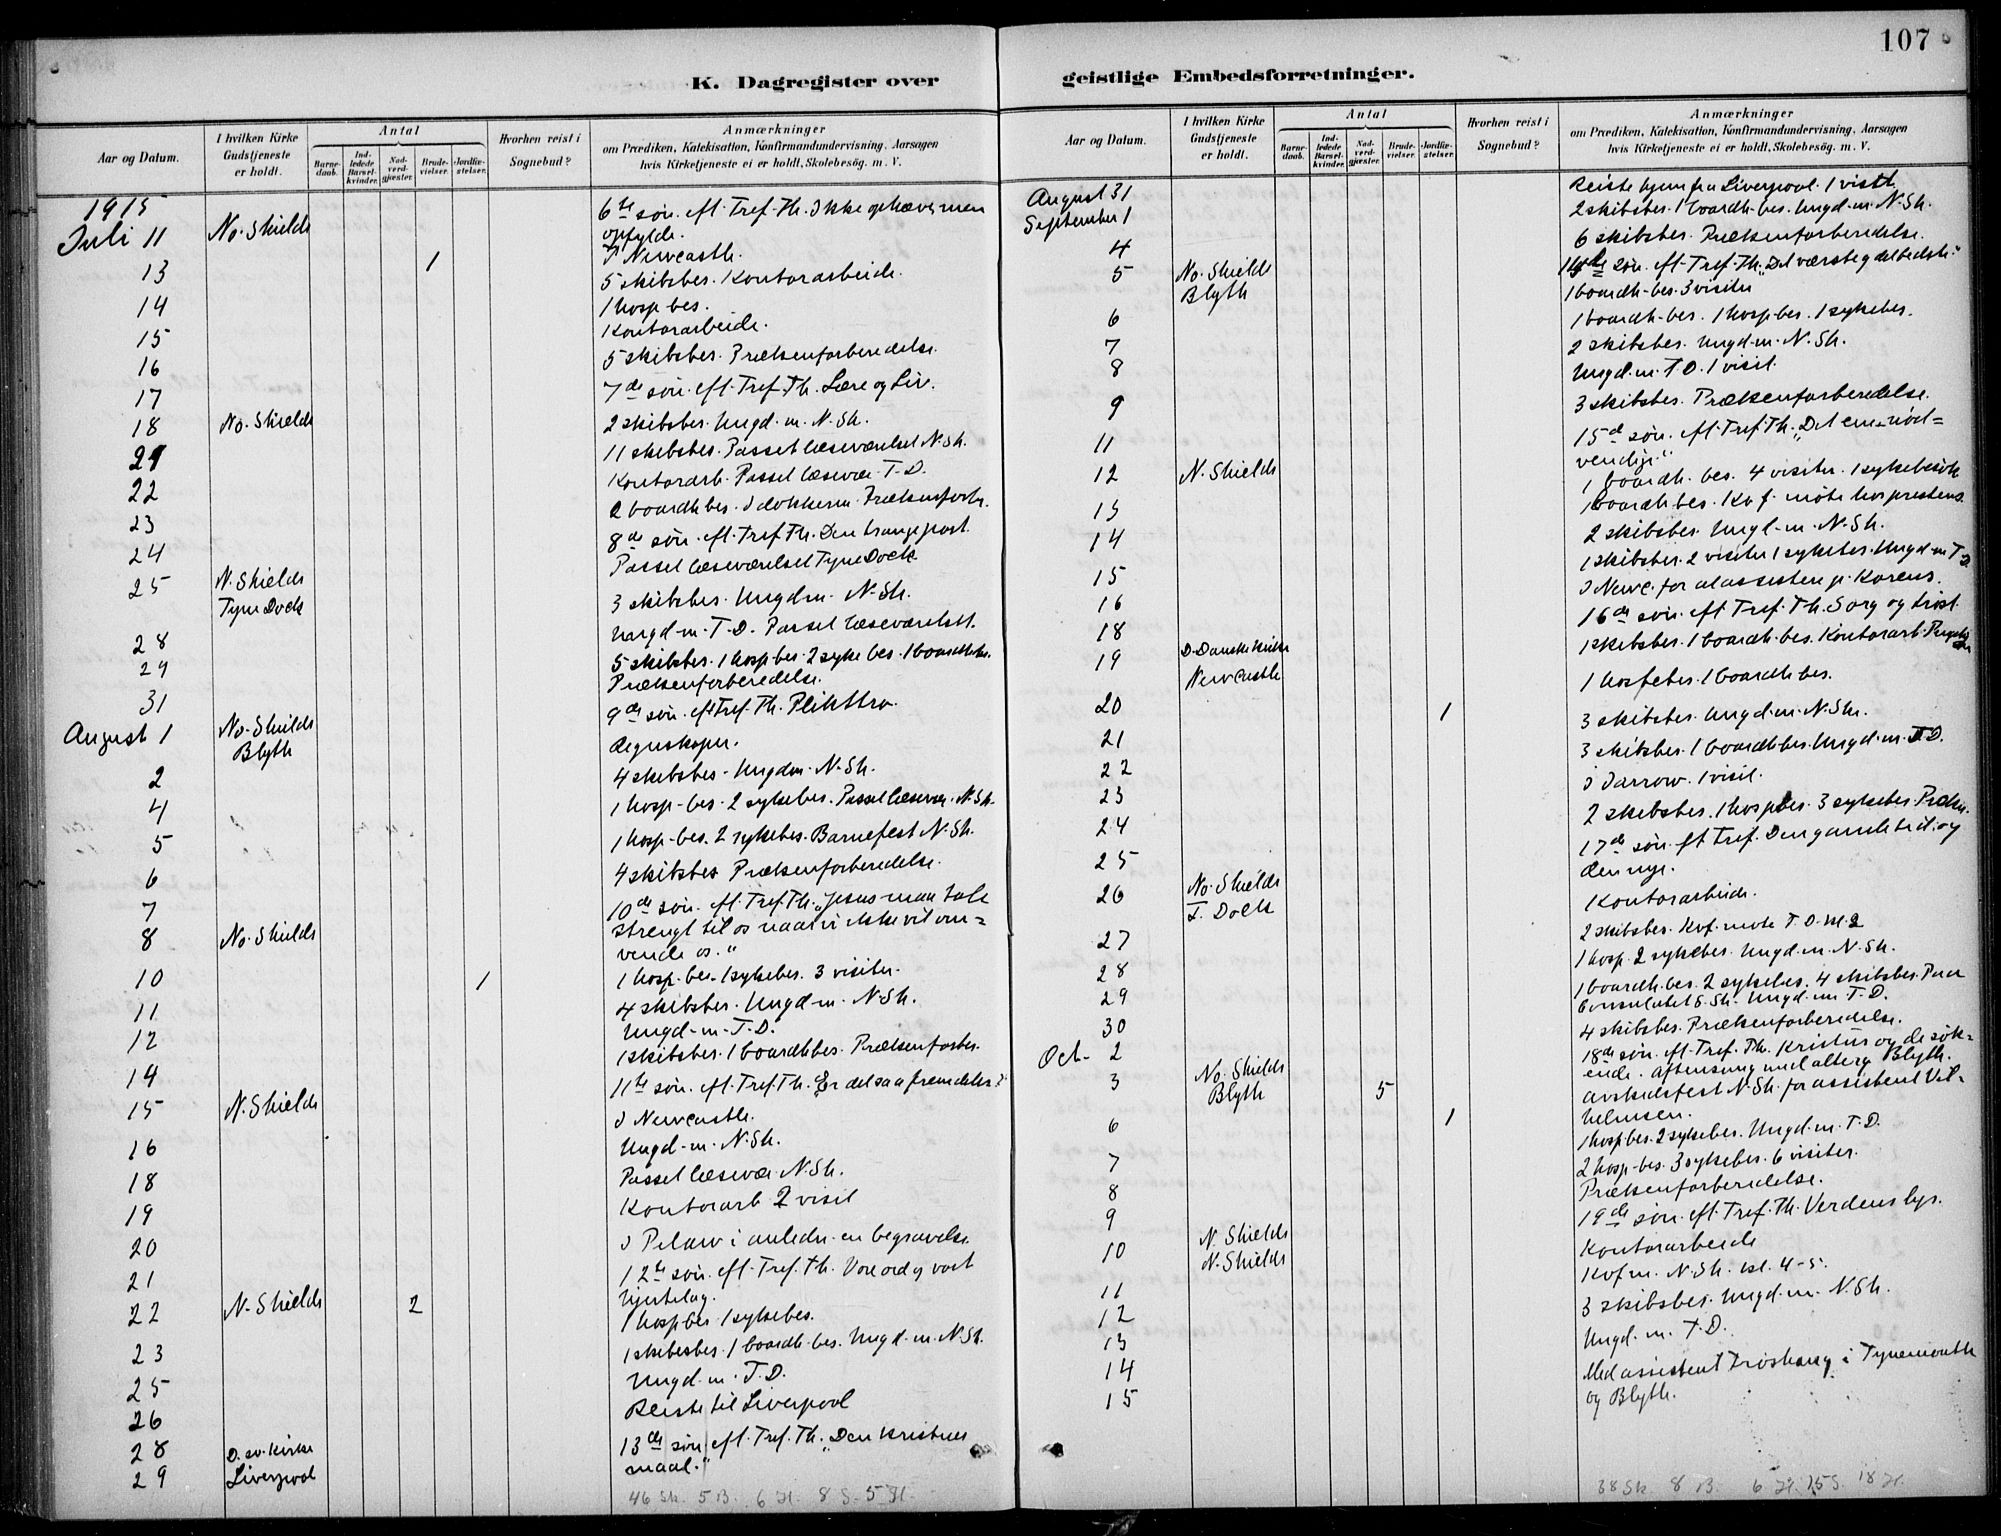 107
K. Dagregister over geistlige Embedsforretninger.
Aar og Datum.
I hvilken Kirke Gudstjeneste er holdt.
Antal
Barne-daab.
Ind-ledede Barsel-kvinder.
Nad-verd-gjæster.
Brude-vielser.
Jordfæ-stelser.
Hvorhen reist i Sognebud?
Anmærkninger
om Prædiken, Katekisation, Konfirmandundervisning, Aarsagen
hvis Kirketjeneste ei er holdt, Skolebesög. m. V.
1915
Juli 11 No. Shields 6te søn. eft. Tref. Th. Ikke ophæve, men
opfylde.
13 1 I Newcastle.
14 5 skibsbes. Kontorarbeide.
1 hosp bes.
15 Kontorarbeide.
16 5 skibsbes. Prækenforberedelse.
17
18 No. Shields 7de søn. eft. Tref. Th. Lære og Liv.
21 2 skibsbes. Ungd. m. N. Sh.
22 11 skibsbes. Passet læseværelset N. Sh.
23 Kontorarb. Passet læsevær. T. D.
24 2 boardh bes. I dokkerne. Prækenforb.
25 N. Shields 8de søn. eft. Tref. Th. Den trange port.
Tyne Dock Passet læseværelset Tyne Dock
28 3 skibsbes. Ungd m. N. Sh.
29 Ungd. m. T. D. Passet læseværelset.
31 5 skibsbes. 1 hosp bes. 2 syke bes. 1 boardh bes.
Prækenforberedelse.
August 1 No. Shields 9de søn. eft Tref. Th. Plikttro.
Blyth
2 Regnskaper.
4 4 skibsbes. Ungdm. N. Sh.
5 1 hosp-bes. 2 sykebes. Passet læsevær. N. Sh.
6 1 hosp-bes. 2 sykebes. Barnefest N. Sh.
7 4 skibsbes Prækenforberedelse.
8 No. Shields 10de søn. eft. Tref. Th. „Jesus maa tale
strengt til os naar vi ikke vil om-
vende os."
10 1 1 hosp. bes. 1 sykebes. 3 visiter.
11 4 skibsbes. Ungd-m. N. Sh.
12 Ungd-m-T. D.
14 1 skibsbes. 1 boardh bes. Prækenforber.
15 N. Shields 11te søn. eft. Tref. Th. Er det saa fremdeles?
16 I Newcastle.
18 Ungd-m. N. Sh.
19 Passet læsevær N. Sh.
20 Kontorarb 2 visit
21 I Pelaw i anledn. en begravelse
22 N. Shields 2 12te søn. eft. Tref. Th. Vore ord og vort
hjertelag.
23 1 hosp bes 1 sykebes.
25 1 skibsbes. 1 boardh-bes. Ungd-m. N. Sh.
26 Ungd. m. T. D.
28 Reiste til Liverpool
29 D. sv. Kirke Liverpool 13de søn. eft. Tref. Th. „Den kristnes
maal."
46 Sk. 5 B. 6 H. 8 S. 5 H.
August 31 Reiste hjem fra Liverpool. 1 visit.
September 1 2 skibsbes. 1 boardh-bes. Ungd-m. N. Sh.
4 6 skibsbes. Prækenforberedelse.
5 No. Shields 14de søn. eft. Tref. Th. „Det værste og det bedste."
Blyth 1 boardh-bes. 3 visiter
6 1 boardh-bes. 1 hosp-bes. 1 sykebes.
7 2 skibsbes. Ungd-m. N. Sh.
8 Ungd. m. T. D. 1 visit.
9
11 3 skibsbes. Prækenforberedelse.
12 N. Shields 15de søn. eft. Tref. Th. „Det ene nød-
vendige."
13 1 boardh. bes. 4 visiter. 1 sykebesøk
14 1 boardh bes. Kvf. møte hos prestens.
15 2 skibsbes. Ungd-m. N. Sh.
16 1 skibsbes. 2 visiter 1 sykebes. Ungd-m T. D.
18
19 D. Danske Kirke 16de søn. eft. Tref. Th. Sorg og trøst.
Newcastle
20 1
21 1 hospbes. 1 boardh bes.
22 3 skibsbes. Ungd-m. N. Sh.
23 3 skibsbes. 1 boardh-bes. Ungd-m. T. D.
24 I Jarrow. 1 visit.
25 2 skibsbes. 1 hosp bes. 3 sykebes. Præken.
26 No. Shields 17de søn. eft Tref. Den gamle tid og
T. Dock den nye.
27 Kontorarbeide.
28 2 skibsbes. Kvf. møte T. D.
29 1 hosp. 2 sykebes. Ungd-m. N. Sh.
30 1 boardh. bes. 2 sykebes. 4 skibsbes. Paa
Consulatet S. Sh. Ungd-m T. D.
Oct. 2 4 skibsbes. Prækenforberedelse.
3 No. Shields 5 18de søn. eft. Tref. Th. Kristus og de søk-
Blyth ende. Aftensang med alterg Blyth.
6 1 Avskedsfest N. Sh. for assistent Vil-
helmsen.
7 1 hosp bes. 2 sykebes. Ungd. m. T. D.
8 2 hosp-bes. 3 sykebes. 6 visiter.
9 Prækenforberedelse.
10 N. Shields 19de søn. eft. Tref. Th. Verdens lys.
N. Shields
11 Kontorarbeide
12 Kvf m. N. Sh. kl. 4-5.
13 3 skibsbes. Ungd. m. N. Sh.
14 Ungd. m. T. D.
15 Med assistent i Tynemouth
og Blyth.
38 Sk. 8 B. 6 H. 15 S. 18 H.